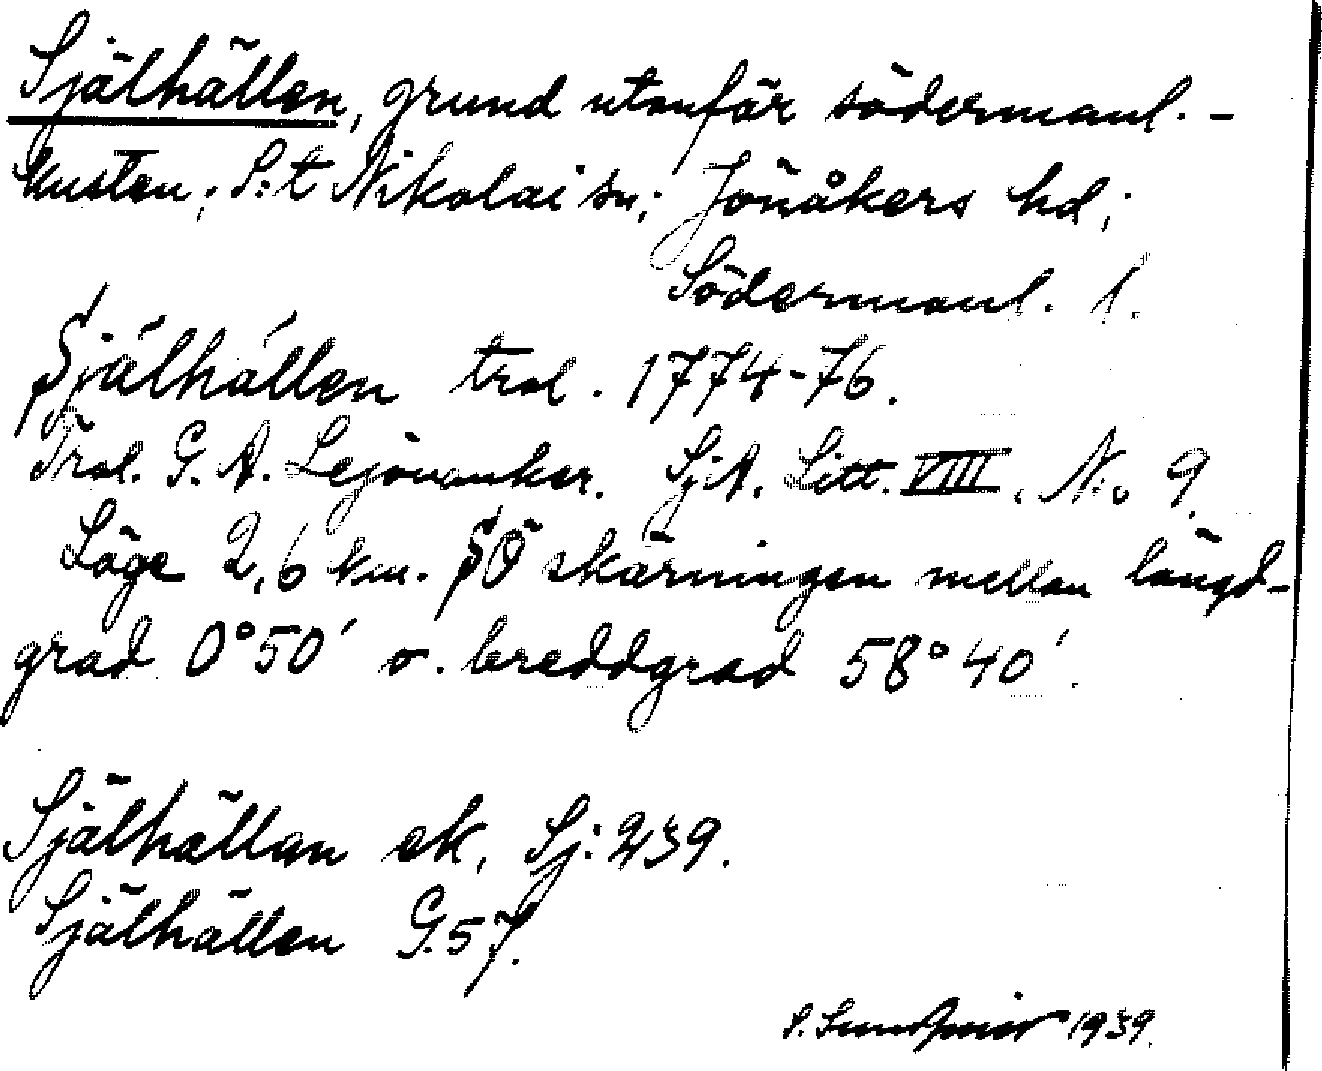 Själhällen, grund utanför södermanl. -
kusten; S:t Nikolai sn; Jönåkers hd;
Södermanl. l.
Själhällen trol. 1774-76.
Trol. G. A. Lejonanker. SjA. Litt. VIII. No 9.
Läge 2,6 km. SÖ skärningen mellan längd-
grad 0°50' o. breddgrad 58°40'.
Själhällan ek. Sj: 239.
Själhällen G.57.
1939.